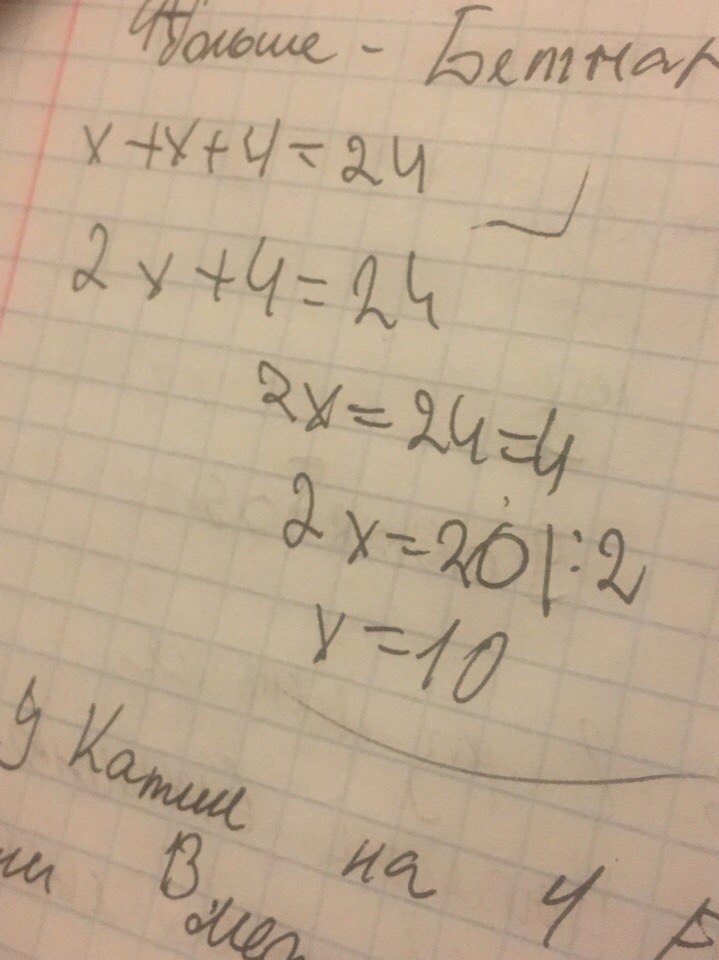 больше - Бетман
x+x+4=24
2x+4=24
2x=24=4
2x=20|:2
x=10
У Катии
на 4
В